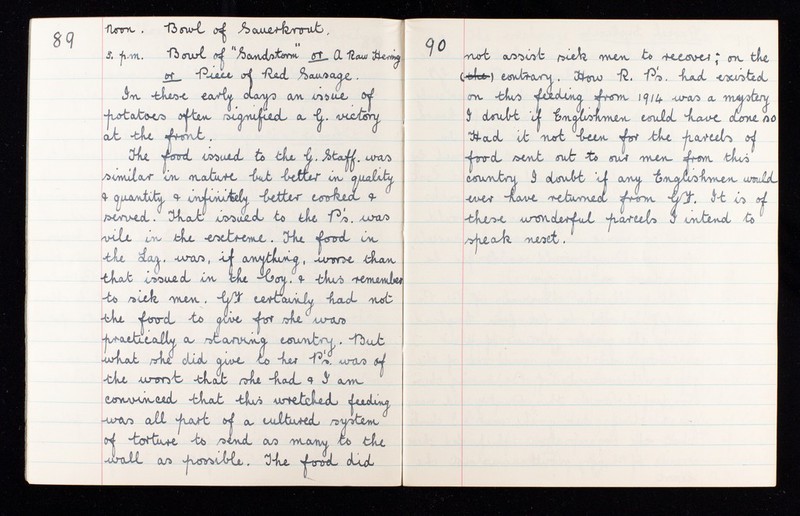 89
Noon. Bowl of Sauerkrout.
5. p.m. Bowl of "Sandstorm" or A Raw Herring
or Piece of Red Sausage.
In these early days an issue of
potatoes often signified a G. victory
at the front.
The food issued to the G. Staff. was
similar in nature but better in quality
& quantity & infinitely better cooked &
served. That issued to the P's. was
vile in the extreme. The food in
the Laz. was, if anything, worse than
that issued in the Coy. & this remember
to sick men. GY certainly had not
the food to give for she was
practically a starving country. But
what she did give to her P's. was of
the worst that she had & I am
convinced that this wretched feeding
was all part of a cultured system
of torture to send as many to the
wall as possible. The food did
90
not assist sick men to recover; on the
(the) contrary. How R. P's. had existed
on this feeding from 1914 was a mystery
I doubt if Englishmen could have done so
Had it not been for the parcels of
food sent out to our men from this
country I doubt if any Englishmen would
ever have returned from GY. It is of
these wonderful parcels I intend to
speak next.